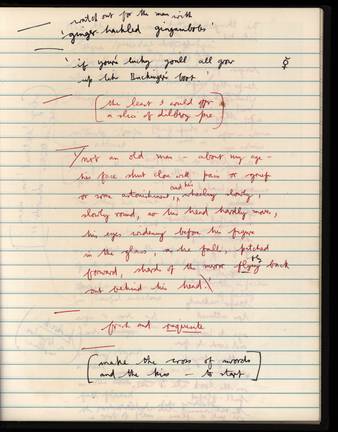 watch out for the man with
'ginger-hackled gingambobs'
'if you're lucky you'll all grow
up like Buckingin's boot'
[the least I would offer
a slice of dildboy pie]
not an old man — about my age —
his face shut close with pain or grief
or some astonishment, and his wheeling slowly,
slowly round, as his head hardly more,
his eyes widening before his figure
in the glass, in the fall, pitched
forward, shards of the mirror flying back
out behind his head.
fresh and
[make the cross of swords
and the kiss — to start]